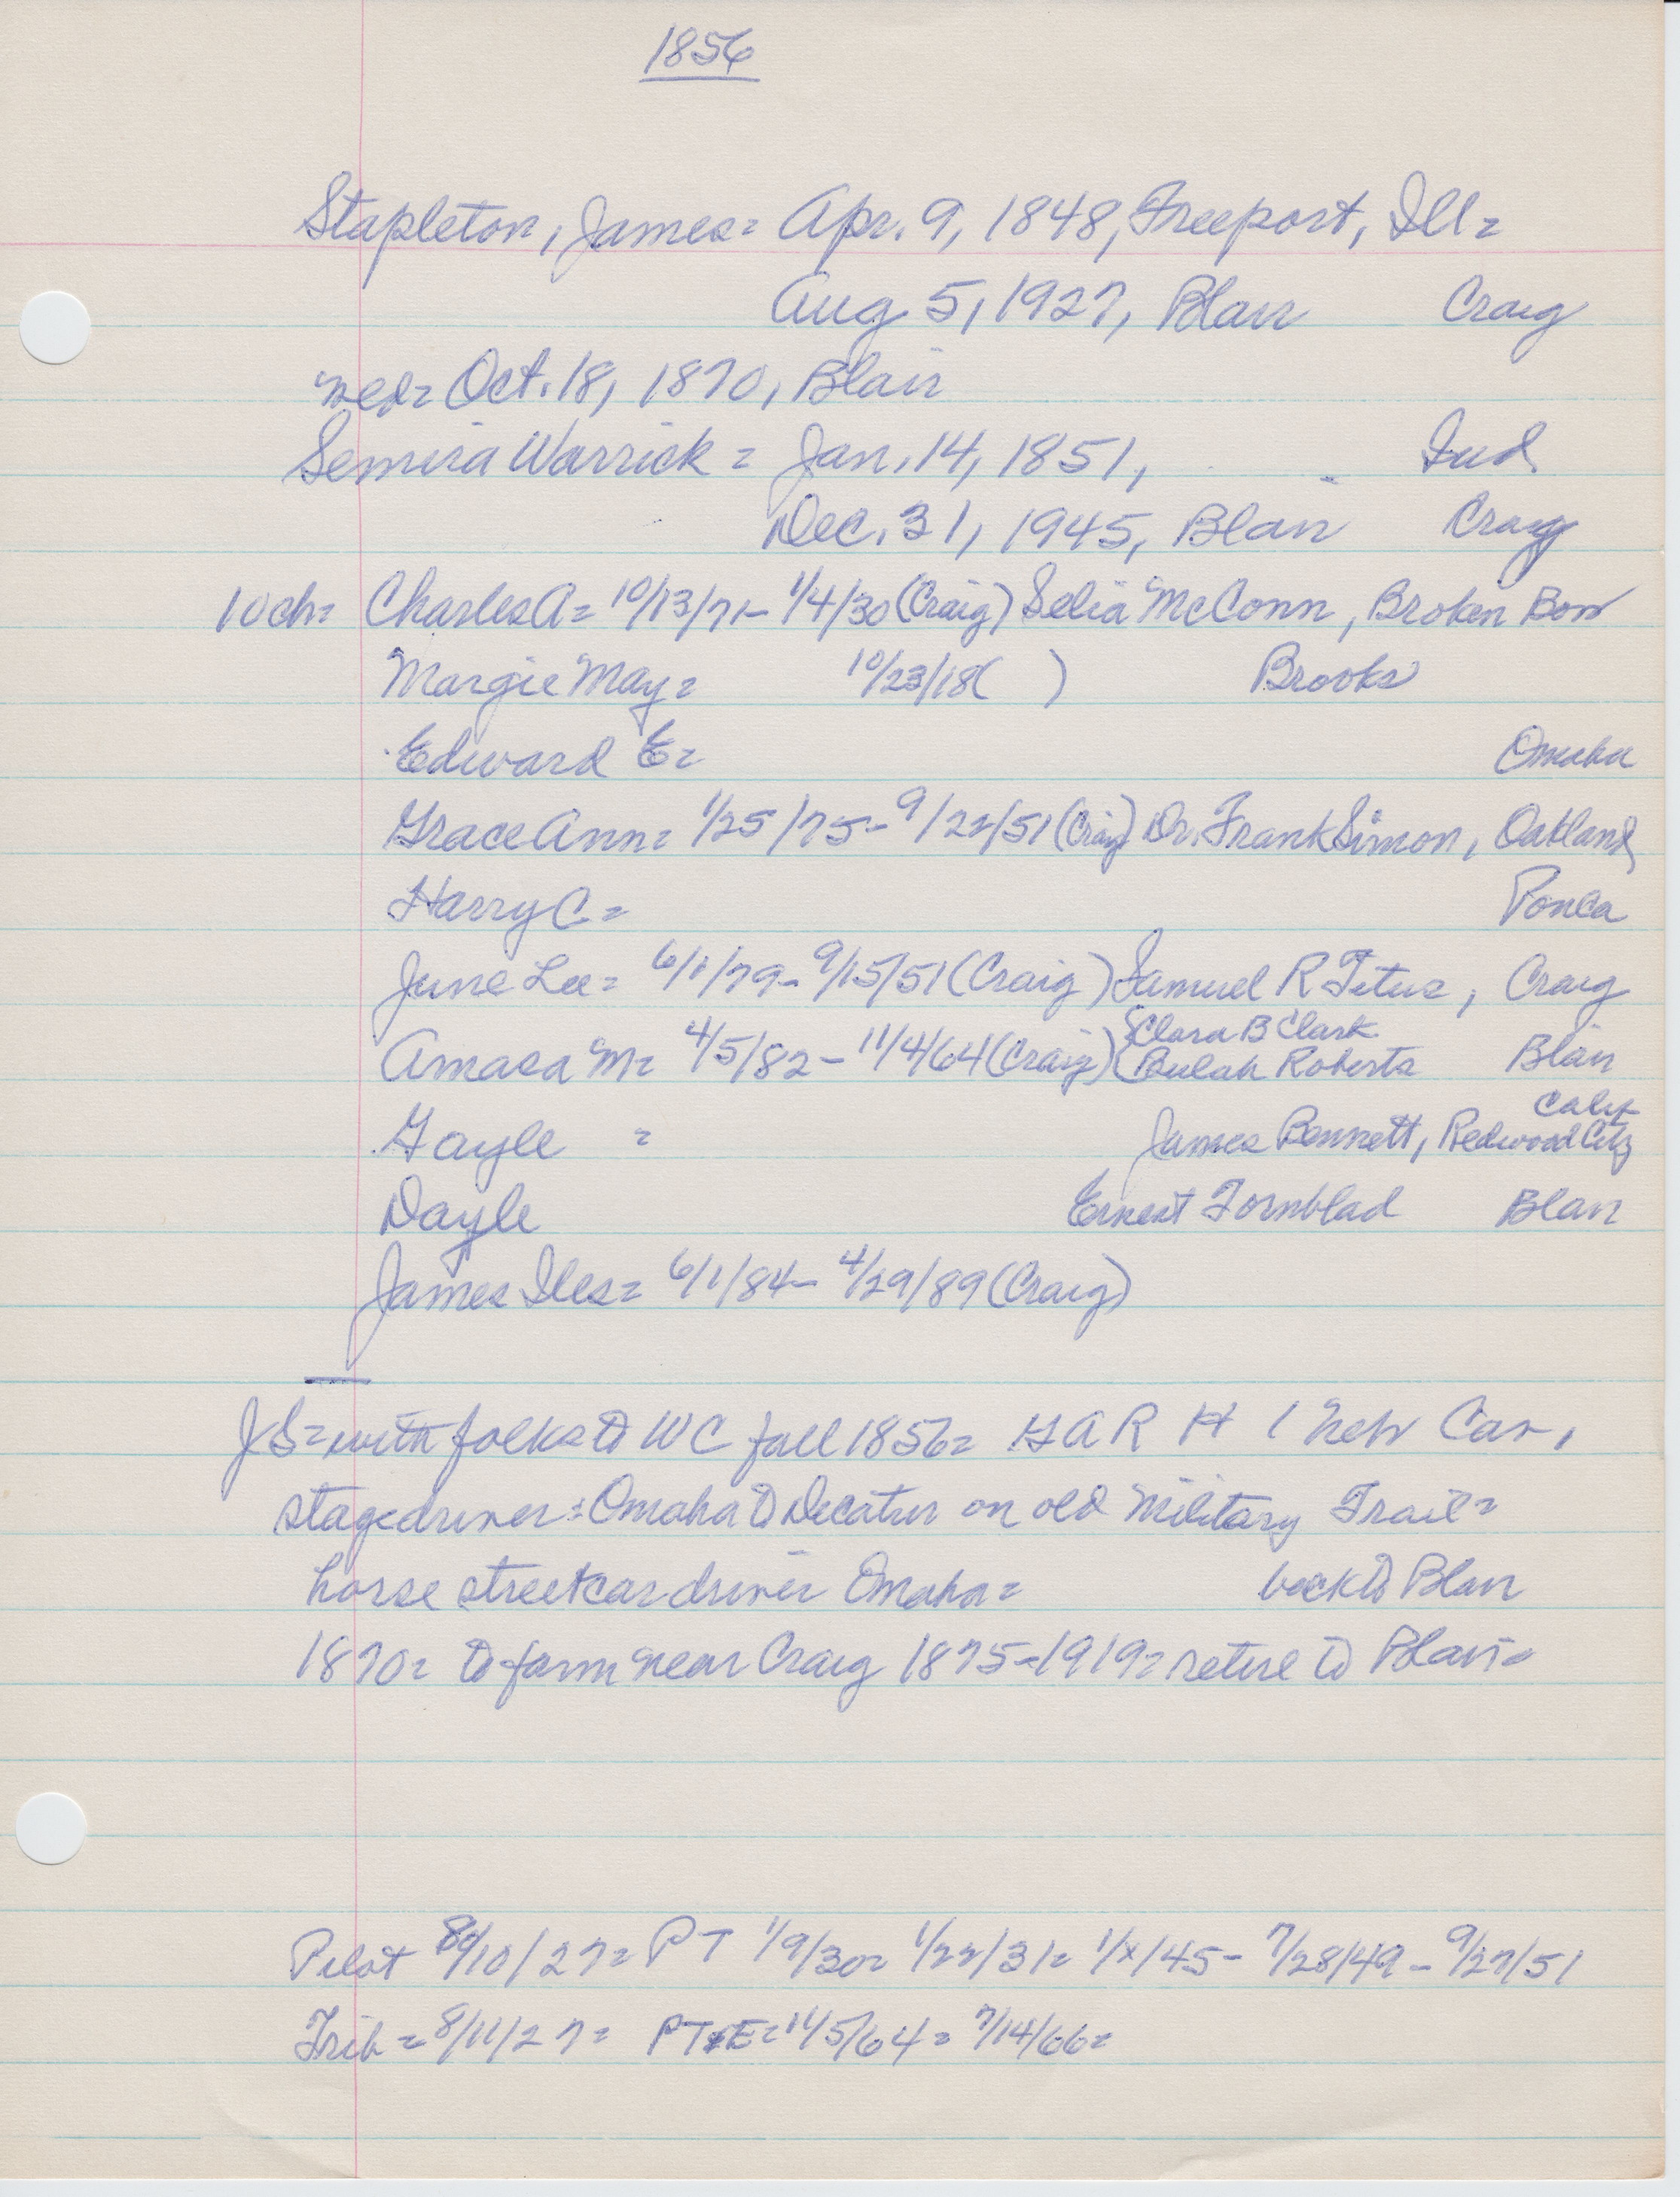 1856
Stapleton, James = Apr. 9, 1848, Freeport, Ill =
Aug 5, 1927, Blair Craig
med = Oct. 18, 1870, Blair
Semira Warrick = Jan. 14, 1851, Ind
Dec. 31, 1945, Blair Craig
10 ch = Charles A = 10/13/71 - 1/4/30 (Craig) Selia McConn, Broken Bow
Margie May = 10/23/18 ( ) Brooks
Edward E = Omaha
Grace Ann = 1/25/75 - 9/22/51 (Craig) Dr. Frank Simon, Oakland
Harry C = Ponca
June Lee = 6/1/79 - 9/15/51 (Craig) Samuel R Titus, Craig
Clara B Clark
Amasa M = 4/5/82 - 11/4/64 (Craig) Beulah Roberts Blair
Calif
Gayle = James Bennett, Redwood City
Dayle Ernest Fornblad Blair
James Iles = 6/1/84 - 4/29/89 (Craig)
JS = with folks to WC fall 1856 = GAR H 1 Neb Cav,
stagedriver = Omaha to Decatur on old Military Trail =
horse streetcar driver Omaha = back to Blair
1870 = to farm near Craig 1875 - 1919 = retire to Blair =
Pilot 8/10/27 = PT 1/9/30 = 1/22/31 = 1/x/45 - 7/28/49 - 9/27/51
Trib = 8/11/27 = PT&E = 11/5/64 = 7/14/66 =